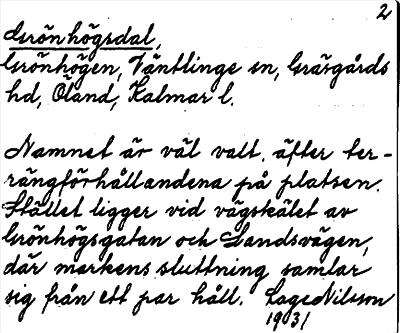 2
Grönhögsdal,
Grönhögen, Ventlinge sn, Gräsgårds
hd, Öland, Kalmar l.
Namnet är väl valt. äfter ter-
rängförhållandena på platsen.
Stället ligger vid vägskälet av
Grönhögsgatan och Landsvägen,
där markens sluttning samlar
sig från ett par håll. Lage Nilsson
1931